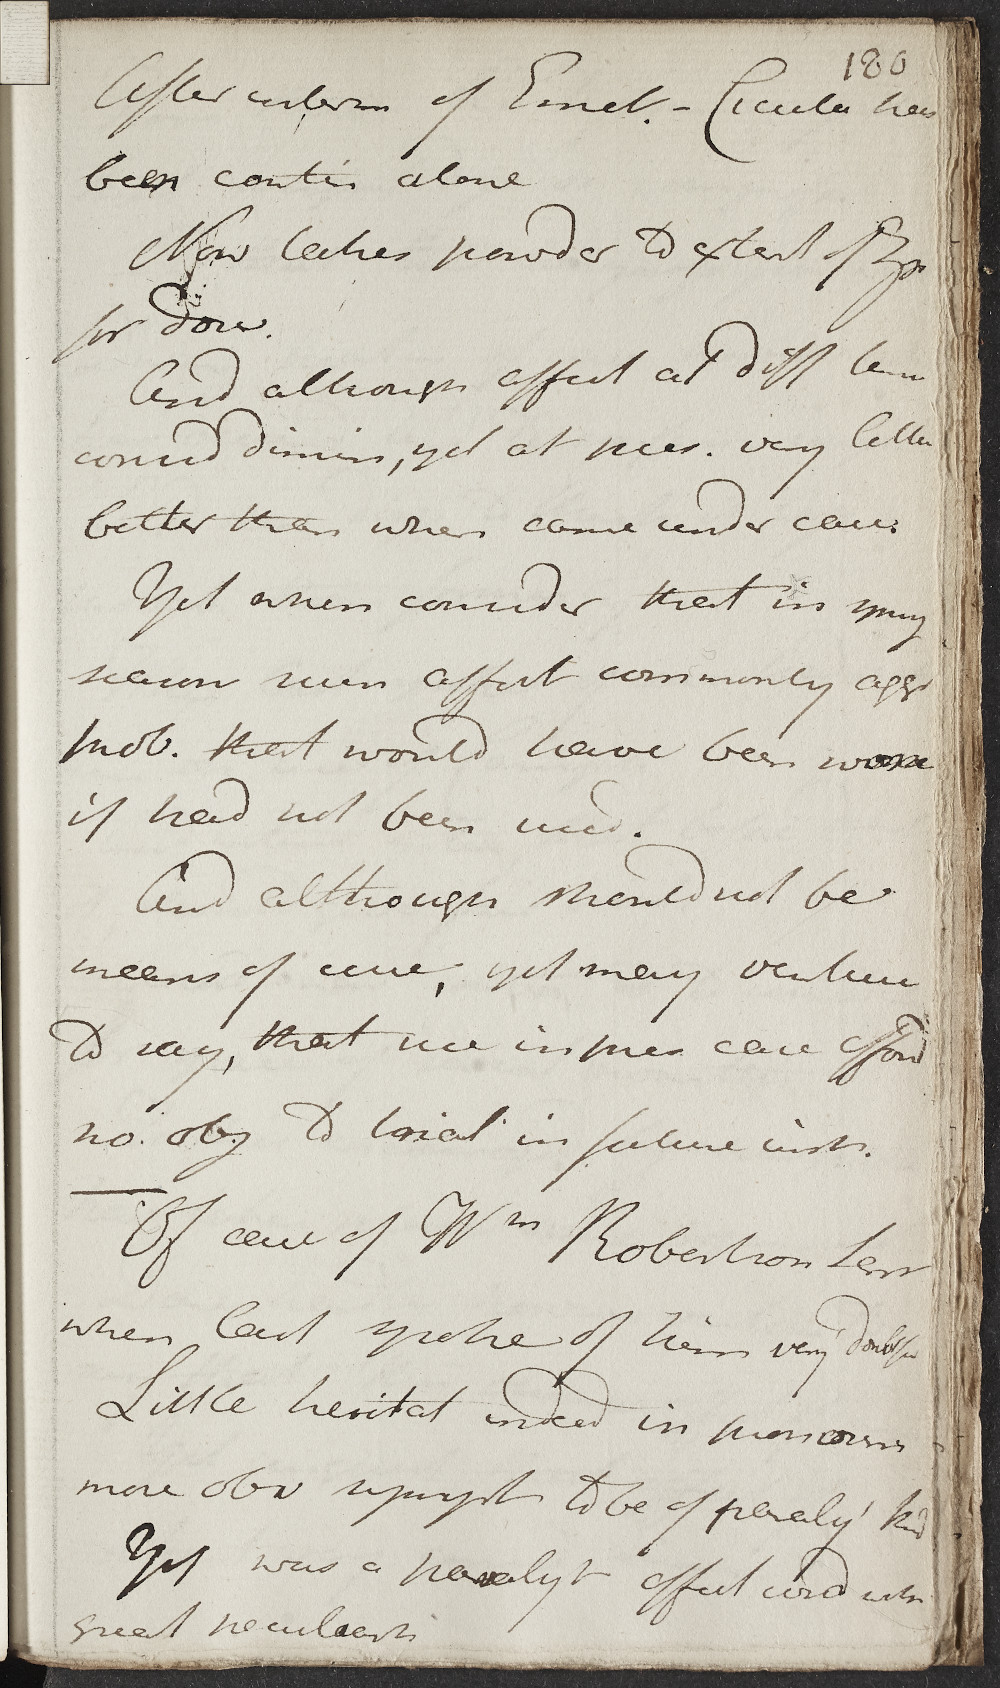 180
After interm of Emet. - Cicuta has
been contin alone
Now takes powder to extent of
for dose.
And although affect at diff tem
consid dimin, yet at pres. very little
better than when came under care.
Yet when consider that in spring
season such affect commonly aggr
prob. that would have been worse
if had not been used.
And although should not be
means of cure, yet may venture
to say, that use in pres case afford
no obj to trial in future inst.
Of case of Wm Robertson
when last spoke of him very doubtfu
Little hesitat indeed in pronoun
more obv sympt to be of paralyt kind
Yet was a paralyt affect cond with
great peculiarit